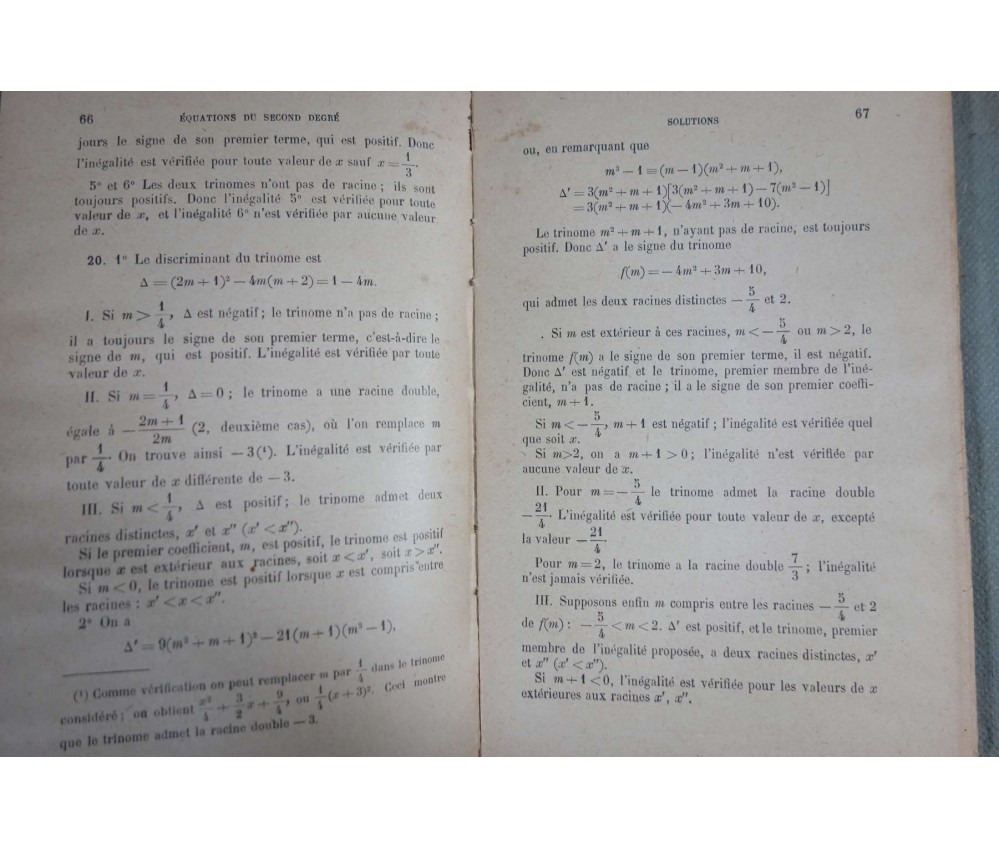 66
ÉQUATIONS DU SECOND DEGRÉ
jours le signe de son premier terme, qui est positif. Donc
l'inégalité est vérifiée pour toute valeur de x sauf x = 1/3.
5° et 6° Les deux trinomes n'ont pas de racine ; ils sont
toujours positifs. Donc l'inégalité 5° est vérifiée pour toute
valeur de x, et l'inégalité 6° n'est vérifiée par aucune valeur
de x.
20. 1° Le discriminant du trinome est
Δ = (2m + 1)² − 4m(m + 2) = 1 − 4m.
I. Si m > 1/4, Δ est négatif ; le trinome n'a pas de racine ;
il a toujours le signe de son premier terme, c'est-à-dire le
signe de m, qui est positif. L'inégalité est vérifiée par toute
valeur de x.
II. Si m = 1/4, Δ = 0 ; le trinome a une racine double,
égale à − (2m + 1)/2m (2, deuxième cas), où l'on remplace m
par 1/4. On trouve ainsi − 3 (¹). L'inégalité est vérifiée par
toute valeur de x différente de − 3.
III. Si m < 1/4, Δ est positif ; le trinome admet deux
racines distinctes, x′ et x″ (x′ < x″).
Si le premier coefficient, m, est positif, le trinome est positif
lorsque x est extérieur aux racines, soit x < x′, soit x > x″.
Si m < 0, le trinome est positif lorsque x est compris entre
les racines : x′ < x < x″.
2° On a
Δ′ = 9(m² + m + 1)² − 21(m + 1)(m³ − 1),
(¹) Comme vérification on peut remplacer m par 1/4 dans le trinome
considéré ; on obtient x²/4 + 3/2 x + 9/4, ou 1/4 (x + 3)². Ceci montre
que le trinome admet la racine double − 3.
SOLUTIONS
67
ou, en remarquant que
m³ − 1 = (m − 1)(m² + m + 1),
Δ′ = 3(m² + m + 1)[3(m² + m + 1) − 7(m² − 1)]
= 3(m² + m + 1)(− 4m² + 3m + 10).
Le trinome m² + m + 1, n'ayant pas de racine, est toujours
positif. Donc Δ′ a le signe du trinome
f(m) = − 4m² + 3m + 10,
qui admet les deux racines distinctes − 5/4 et 2.
. Si m est extérieur à ces racines, m < − 5/4 ou m > 2, le
trinome f(m) a le signe de son premier terme, il est négatif.
Donc Δ′ est négatif et le trinome, premier membre de l'iné-
galité, n'a pas de racine ; il a le signe de son premier coeffi-
cient, m + 1.
Si m < − 5/4, m + 1 est négatif ; l'inégalité est vérifiée quel
que soit x.
Si m>2, on a m + 1 > 0 ; l'inégalité n'est vérifiée par
aucune valeur de x.
II. Pour m = − 5/4 le trinome admet la racine double
− 21/4. L'inégalité est vérifiée pour toute valeur de x, excepté
la valeur − 21/4.
Pour m = 2, le trinome a la racine double 7/3 ; l'inégalité
n'est jamais vérifiée.
III. Supposons enfin m compris entre les racines − 5/4 et 2
de f(m) : − 5/4 < m < 2. Δ′ est positif, et le trinome, premier
membre de l'inégalité proposée, a deux racines distinctes, x′
et x″ (x′ < x″).
Si m + 1 < 0, l'inégalité est vérifiée pour les valeurs de x
extérieures aux racines x′, x″.